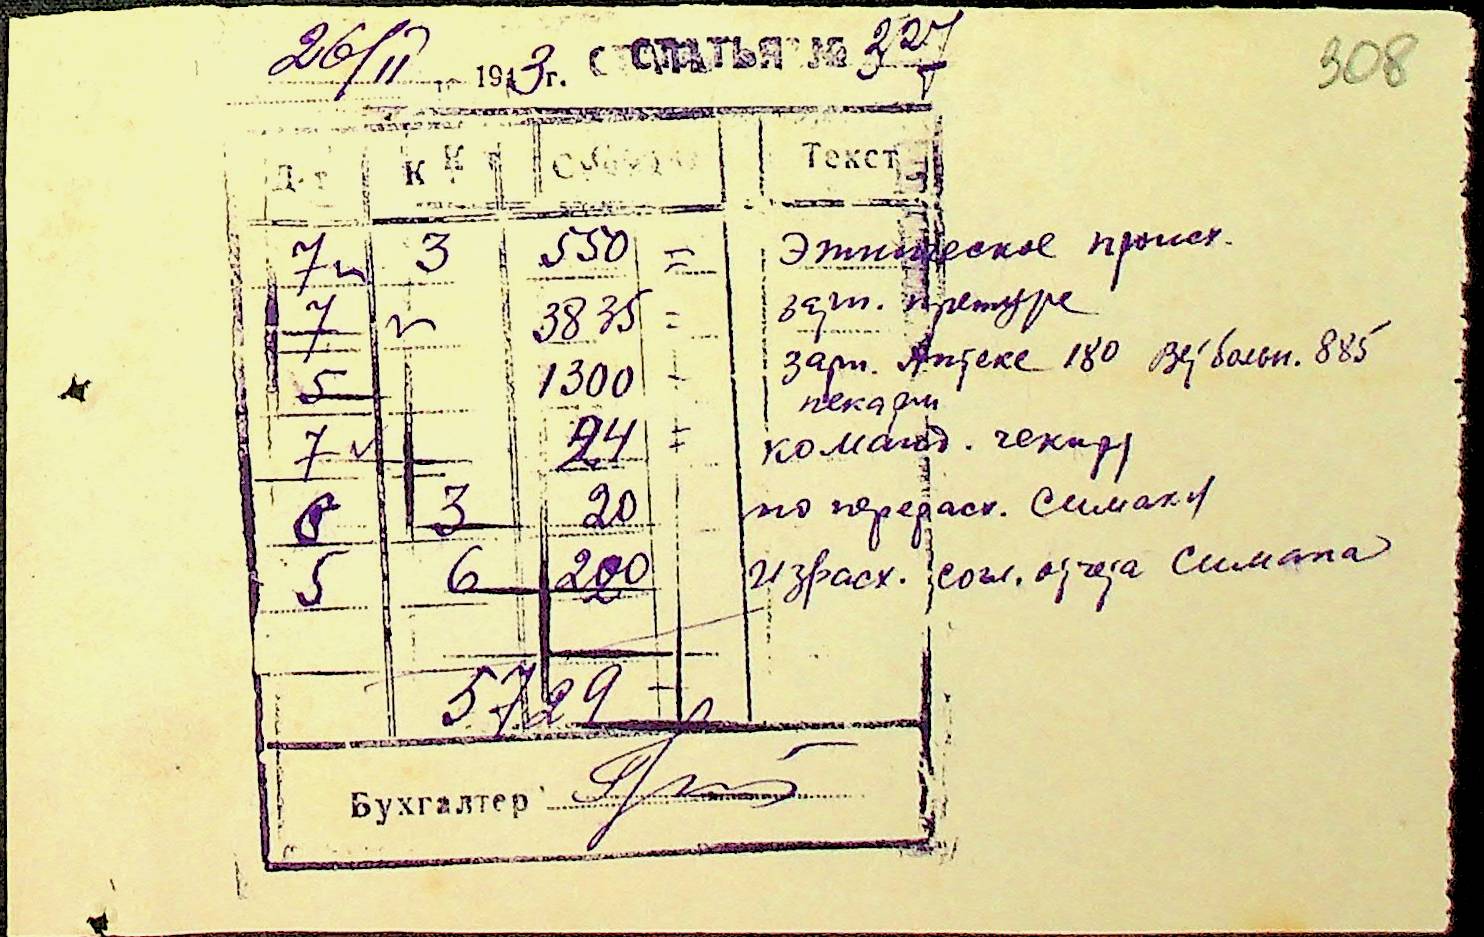 26/II 1943г. СТАТЬЯ № 327
308
Д-т К-т Сумма Текст
7 3 550 = Этническое происх.
7 3835 = зарп. претуре
5 1300 - зарп. Аптеке 180 вет больн. 885
пекарн
7 24 = команд.
6 3 20 по перерасх. Симаки
5 6 200 израсх. согл. отчета Симака
5729 -
Бухгалтер